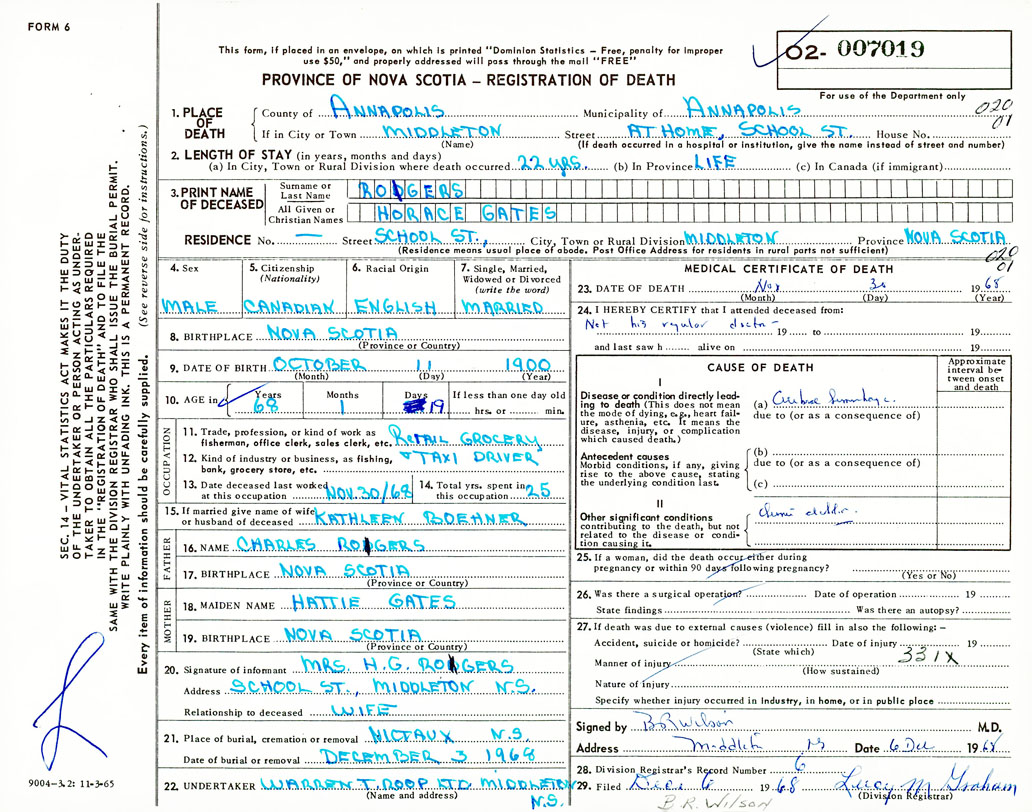 FORM 6
This form, if placed in an envelope, on which is printed "Dominion Statistics – Free, penalty for improper
use $50," and properly addressed will pass through the mail "FREE"
PROVINCE OF NOVA SCOTIA – REGISTRATION OF DEATH
02- 007019
For use of the Department only
020
01
SEC. 14 – VITAL STATISTICS ACT MAKES IT THE DUTY
OF THE UNDERTAKER OR PERSON ACTING AS UNDER-
TAKER TO OBTAIN ALL THE PARTICULARS REQUIRED
IN THE "REGISTRATION OF DEATH" AND TO FILE THE
SAME WITH THE DIVISION REGISTRAR WHO SHALL ISSUE THE BURIAL PERMIT.
WRITE PLAINLY WITH UNFADING INK. THIS IS A PERMANENT RECORD.
Every item of information should be carefully supplied. (See reverse side for instructions.)
1. PLACE OF DEATH
County of ANNAPOLIS Municipality of ANNAPOLIS
If in City or Town MIDDLETON Street AT HOME, SCHOOL ST. House No.
(Name) (If death occurred in a hospital or institution, give the name instead of street and number)
2. LENGTH OF STAY (in years, months and days)
(a) In City, Town or Rural Division where death occurred 22 YRS. (b) In Province LIFE (c) In Canada (if immigrant)
3. PRINT NAME OF DECEASED
Surname or Last Name RODGERS
All Given or Christian Names HORACE GATES
RESIDENCE No. — Street SCHOOL ST., City, Town or Rural Division MIDDLETON Province NOVA SCOTIA
(Residence means usual place of abode. Post Office Address for residents in rural parts not sufficient)
020
01
4. Sex 5. Citizenship (Nationality) 6. Racial Origin 7. Single, Married, Widowed or Divorced (write the word)
MALE CANADIAN ENGLISH MARRIED
8. BIRTHPLACE NOVA SCOTIA
(Province or Country)
9. DATE OF BIRTH OCTOBER 11 1900
(Month) (Day) (Year)
10. AGE in Years Months Days If less than one day old
68 1 19 hrs. or min.
OCCUPATION
11. Trade, profession, or kind of work as fisherman, office clerk, sales clerk, etc. RETAIL GROCERY
12. Kind of industry or business, as fishing, bank, grocery store, etc. + TAXI DRIVER
13. Date deceased last worked at this occupation NOV. 30/68 14. Total yrs. spent in this occupation 25
15. If married give name of wife or husband of deceased KATHLEEN BOEHNER
FATHER
16. NAME CHARLES RODGERS
17. BIRTHPLACE NOVA SCOTIA
(Province or Country)
MOTHER
18. MAIDEN NAME HATTIE GATES
19. BIRTHPLACE NOVA SCOTIA
(Province or Country)
20. Signature of informant MRS. H.G. RODGERS
Address SCHOOL ST., MIDDLETON N.S.
Relationship to deceased WIFE
21. Place of burial, cremation or removal NICTAUX N.S.
Date of burial or removal DECEMBER 3 1968
22. UNDERTAKER WARREN T. ROOP LTD. MIDDLETON
(Name and address) N.S.
MEDICAL CERTIFICATE OF DEATH
23. DATE OF DEATH Nov 30 1968
(Month) (Day) (Year)
24. I HEREBY CERTIFY that I attended deceased from:
Not his regular doctor – 19 to 19
and last saw h alive on 19
CAUSE OF DEATH
Approximate interval between onset and death
I
Disease or condition directly lead-
ing to death (This does not mean
the mode of dying, e.g., heart fail-
ure, asthenia, etc. It means the
disease, injury, or complication
which caused death.)
(a)
due to (or as a consequence of)
Antecedent causes
Morbid conditions, if any, giving
rise to the above cause, stating
the underlying condition last.
(b)
due to (or as a consequence of)
(c)
II
Other significant conditions
contributing to the death, but not
related to the disease or condi-
tion causing it.
25. If a woman, did the death occur either during
pregnancy or within 90 days following pregnancy?
(Yes or No)
26. Was there a surgical operation? Date of operation 19
State findings Was there an autopsy?
27. If death was due to external causes (violence) fill in also the following: –
Accident, suicide or homicide? Date of injury 19
(State which) 331X
Manner of injury
(How sustained)
Nature of injury
Specify whether injury occurred in Industry, in home, or in public place
Signed by B R Wilson M.D.
Address Middleton NS Date 6 Dec 1968
28. Division Registrar's Record Number 6
29. Filed Dec. 6 1968 Lucy M Graham
(Division Registrar)
B.R. WILSON
9004-3.2: 11-3-65